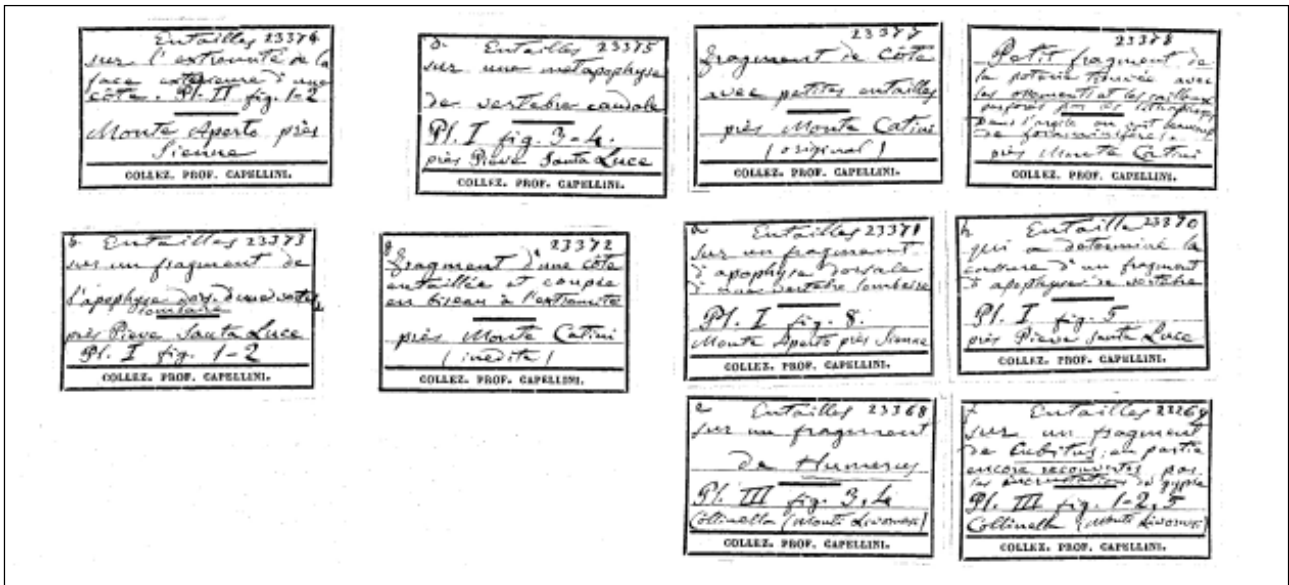 Entailles 23374
sur l'extremité de la
face exterieure d'une
côte. Pl. II fig. 1-2
Monte Aperto près
Sienne
COLLEZ. PROF. CAPELLINI.
Entailles 23375
sur une metapophyse
de vertebre caudale
Pl. I fig. 3-4.
près Pieve Santa Luce
COLLEZ. PROF. CAPELLINI.
23377
fragment de côte
avec petites entailles
près Monte Catini
(original)
COLLEZ. PROF. CAPELLINI.
23378
Petit fragment de
la poterie trouvée avec
les ossements et les
par les
Dans l'argile ou sont beaucoup
de foraminifères.
près Monte Catini
COLLEZ. PROF. CAPELLINI.
b. Entailles 23373
sur un fragment de
l'apophyse dors. d'une verteb.
lombaire
près Pieve Santa Luce
Pl. I fig. 1-2
COLLEZ. PROF. CAPELLINI.
g 23372
Fragment d'une côte
entaillée et coupée
en biseau à l'extremité
près Monte Catini
(inedite)
COLLEZ. PROF. CAPELLINI.
a Entailles 23371
sur un fragment
d'apophyse dorsale
d'une vertebre lombaire
Pl. I fig. 8.
Monte Aperto près Sienne
COLLEZ. PROF. CAPELLINI.
h Entaille 23370
qui a determiné la
cassure d'un fragment
d'apophyse de vertebre
Pl. I fig. 5
près Pieve Santa Luce
COLLEZ. PROF. CAPELLINI.
e Entailles 23368
sur un fragment
de Humerus
Pl. III fig. 3,4
Collinella (Monti Livornesi)
COLLEZ. PROF. CAPELLINI.
f Entailles 23269
sur un fragment
de Cubitus, en partie
encore recouvertes par
les incrustations de gypse
Pl. III fig. 1-2,5
Collinella (Monti Livornesi)
COLLEZ. PROF. CAPELLINI.